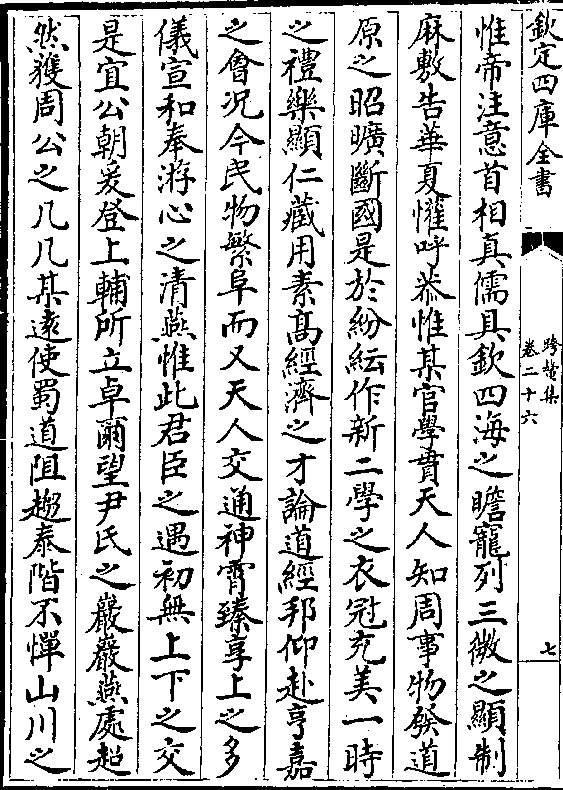 欽定四庫全書
跨鼇集
卷二十六
七
惟帝注意首相真儒具欽四海之瞻寵列三微之顯制
麻敷告華夏懽呼恭惟某官學貫天人知周事物發道
原之昭曠斷國是於紛紜作新二學之衣冠充美一時
之禮樂顯仁藏用素高經濟之才論道經邦仰赴亨嘉
之會況今民物繁阜而又天人交通神霄臻享上之多
儀宣和奉游心之清燕惟此君臣之遇初無上下之交
是宜公朝爰登上輔所立卓爾望尹氏之巖巖燕處超
然獲周公之几几某遠使蜀道阻趨泰階不憚山川之